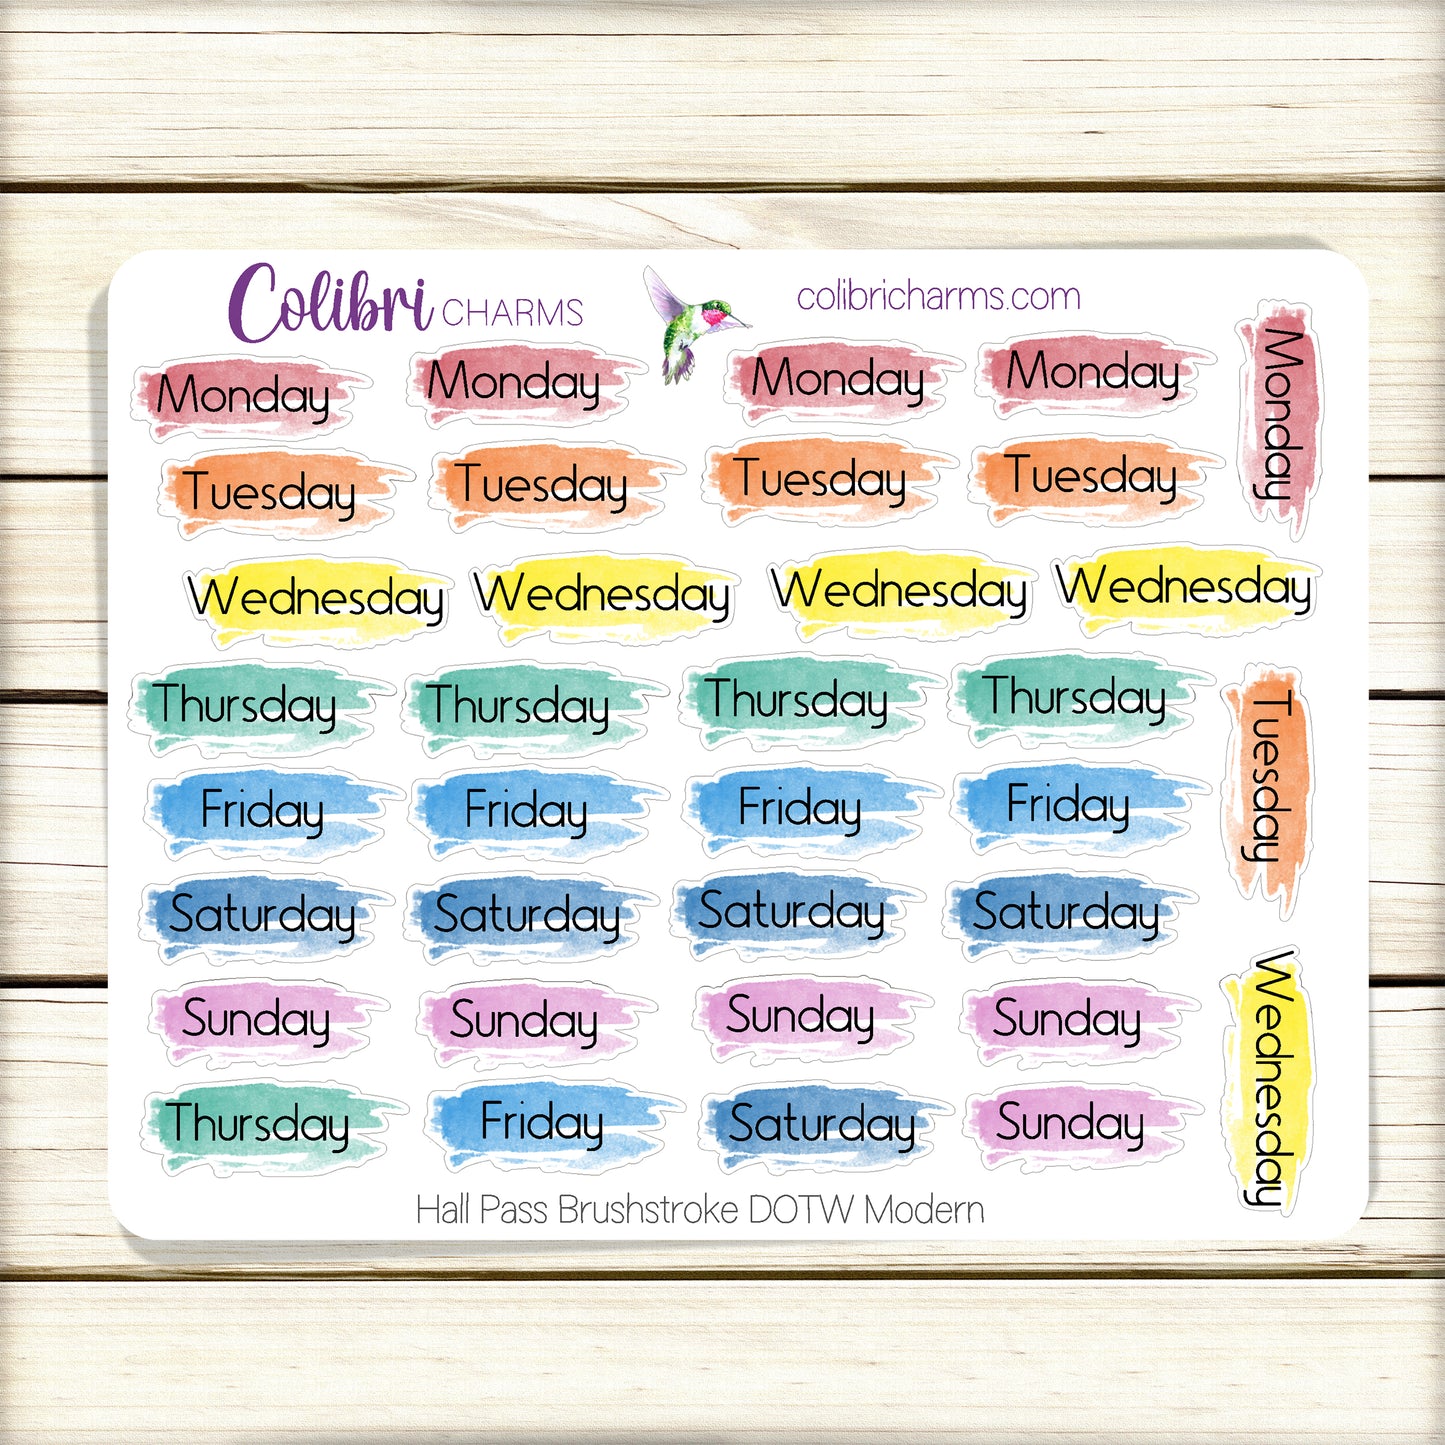 Colibri CHARMS
colibricharms.com
Monday Monday Monday Monday
Monday
Tuesday Tuesday Tuesday Tuesday
Wednesday Wednesday Wednesday Wednesday
Thursday Thursday Thursday Thursday
Tuesday
Friday Friday Friday Friday
Saturday Saturday Saturday Saturday
Sunday Sunday Sunday Sunday
Wednesday
Thursday Friday Saturday Sunday
Hall Pass Brushstroke DOTW Modern